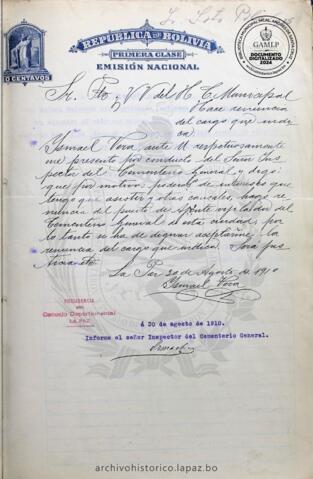 REPUBLICA DE BOLIVIA
PRIMERA CLASE
EMISIÓN NACIONAL
O CENTAVOS
GAMLP
DOCUMENTO
DIGITALIZADO
2024
Sr. Pto y VV del H. C. Municipal
Hace renuncia
del cargo que indi
ca.
Ismael Vera, ante U respetuosamente
me presento por conducto del Señor Ins
pector del Cementerio General y digo:
que por motivos poderosos de intereses que
tengo que asistir y otras causales, hago re
nuncia del puesto de
Cementerio General de esta ciudad, por
lo tanto se ha de dignar aceptarme la
renuncia del cargo que indico. Será jus
La Paz 20 de Agosto de 1910
Ismael Vera
PRESIDENCIA
DEL
Concejo Departamental
LA PAZ
á 20 de agosto de 1910.
Informe el señor Inspector del Cementerio General.
archivohistorico.lapaz.bo